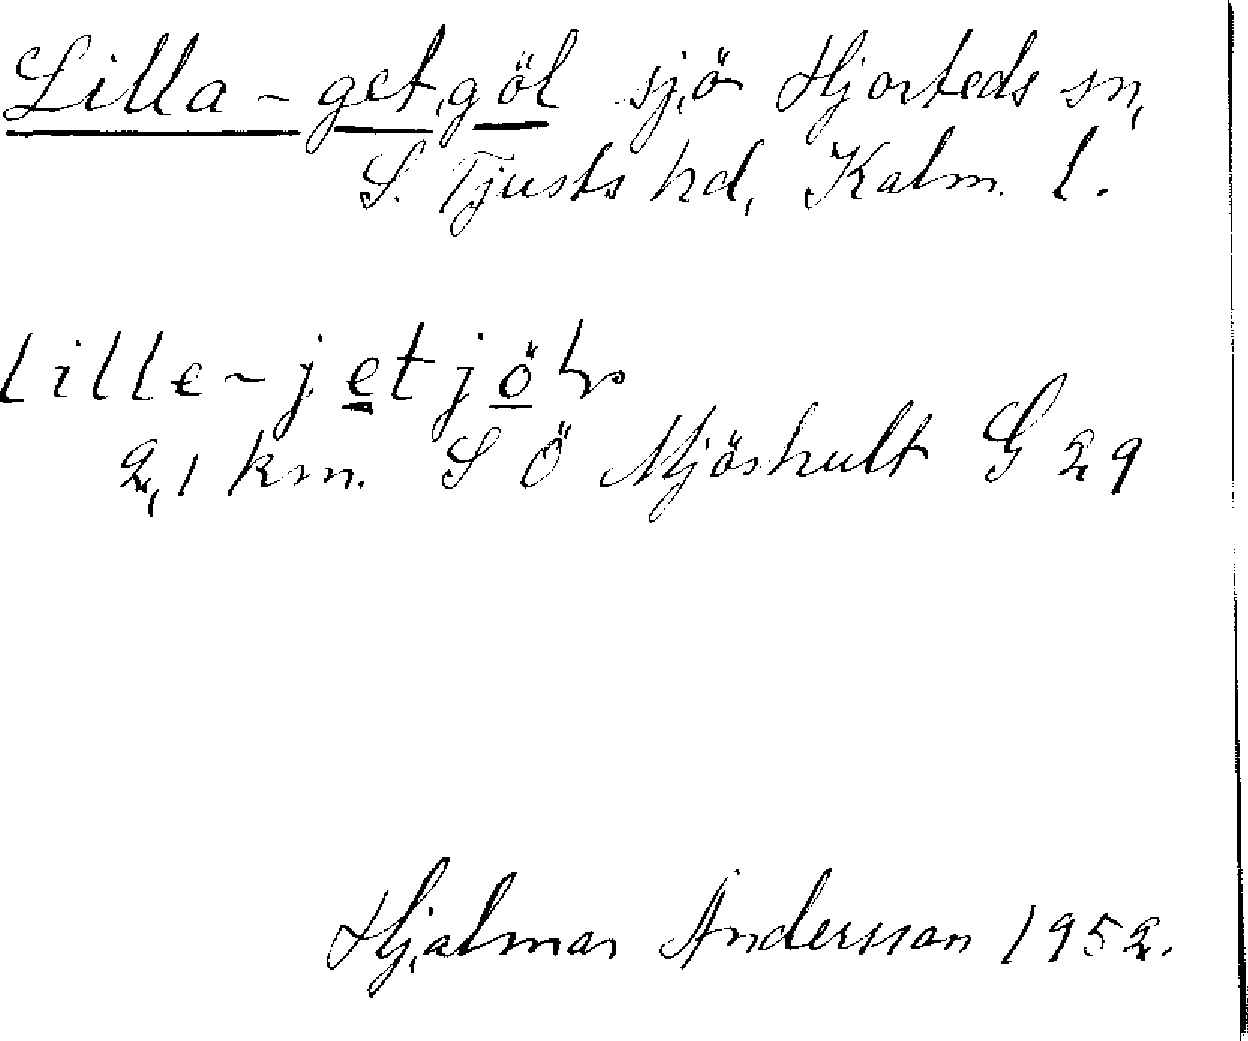 Lilla-getgöl sjö Hjorteds sn,
S. Tjusts hd, Kalm. l.
lille-jetjöl
2,1 km. S Ö Mjöshult G 29
Hjalmar Andersson 1952.